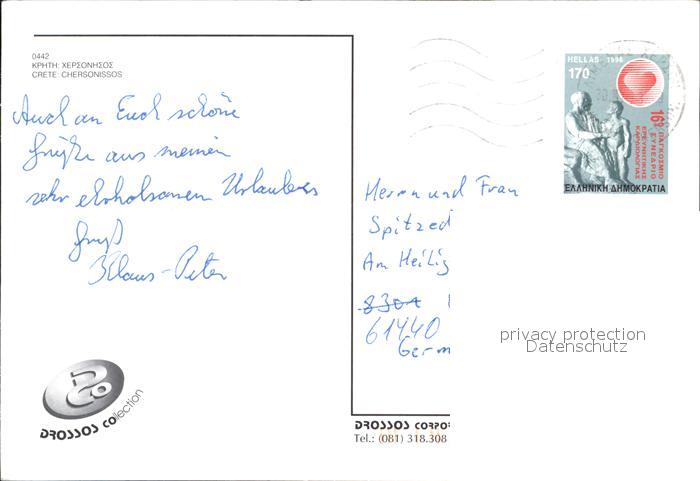 0442
ΚΡΗΤΗ: ΧΕΡΣΟΝΗΣΟΣ
CRETE: CHERSONISSOS
Auch an Euch schöne
Grüße aus meinem
sehr erholsamen Urlaub
Gruß
Klaus-Peter
DROSSOS COllection
HELLAS 1996
170
16ο ΠΑΓΚΟΣΜΙΟ
ΣΥΝΕΔΡΙΟ
ΕΡΕΥΝΗΤΙΚΗΣ
ΚΑΡΔΙΟΛΟΓΙΑΣ
ΕΛΛΗΝΙΚΗ ΔΗΜΟΚΡΑΤΙΑ
Herrn und Frau
Spitzed
Am Heilig
61440
Germ
privacy protection
Datenschutz
DROSSOS CORPOR
Tel.: (081) 318.308